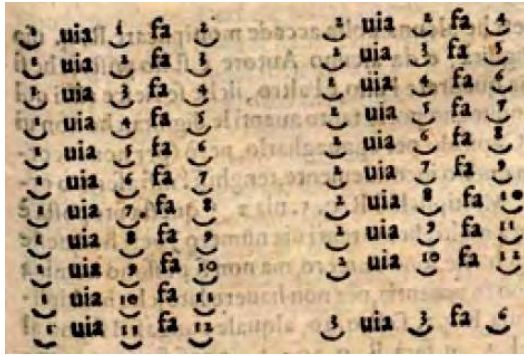 1 uia 1 fa 2
1 uia 2 fa 3
1 uia 3 fa 4
1 uia 4 fa 5
1 uia 5 fa 6
1 uia 6 fa 7
1 uia 7 fa 8
1 uia 8 fa 9
1 uia 9 fa 10
1 uia 10 fa 11
1 uia 11 fa 12
2 uia 2 fa 4
2 uia 3 fa 5
2 uia 4 fa 6
2 uia 5 fa 7
2 uia 6 fa 8
2 uia 7 fa 9
2 uia 8 fa 10
2 uia 9 fa 11
2 uia 10 fa 12
3 uia 3 fa 6